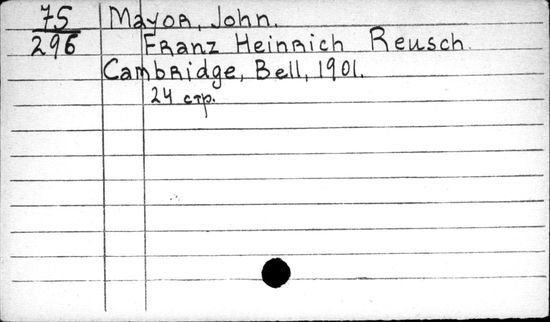 75 Mayor, John.
296 Franz Heinrich Reusch.
Cambridge, Bell, 1901.
24 стр.